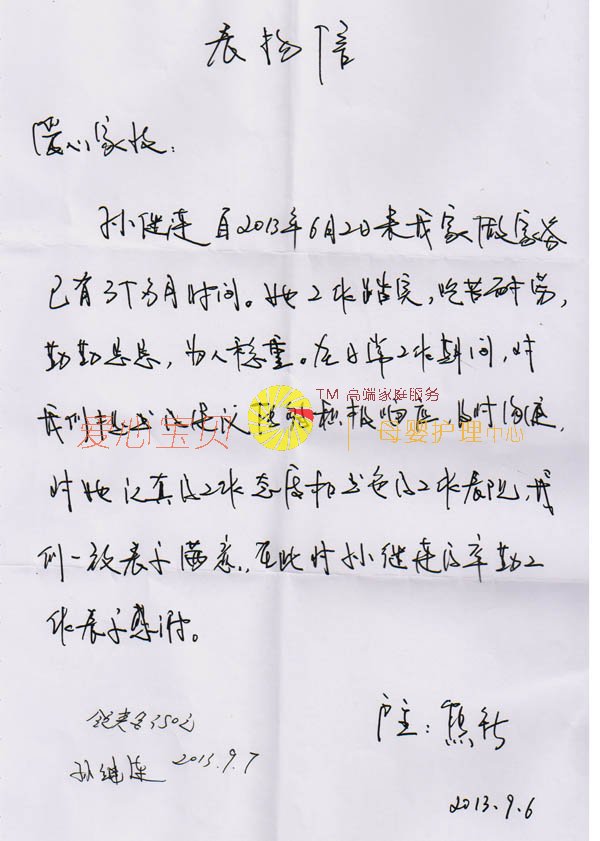 表扬信
爱心家政：
孙继连自2013年6月2日来我家做家务
已有3个多月时间。她工作踏实，吃苦耐劳，
勤勤恳恳，为人稳重。在日常工作期间，对
我们提出的建议能够积极响应，及时沟通，
对她认真的工作态度和出色的工作表现，我
们一致表示满意，在此对孙继连的辛勤工
作表示感谢。
TM 高端家庭服务
爱心宝贝
母婴护理中心
户主：
领奖金50元
孙继连 2013.9.7
2013.9.6